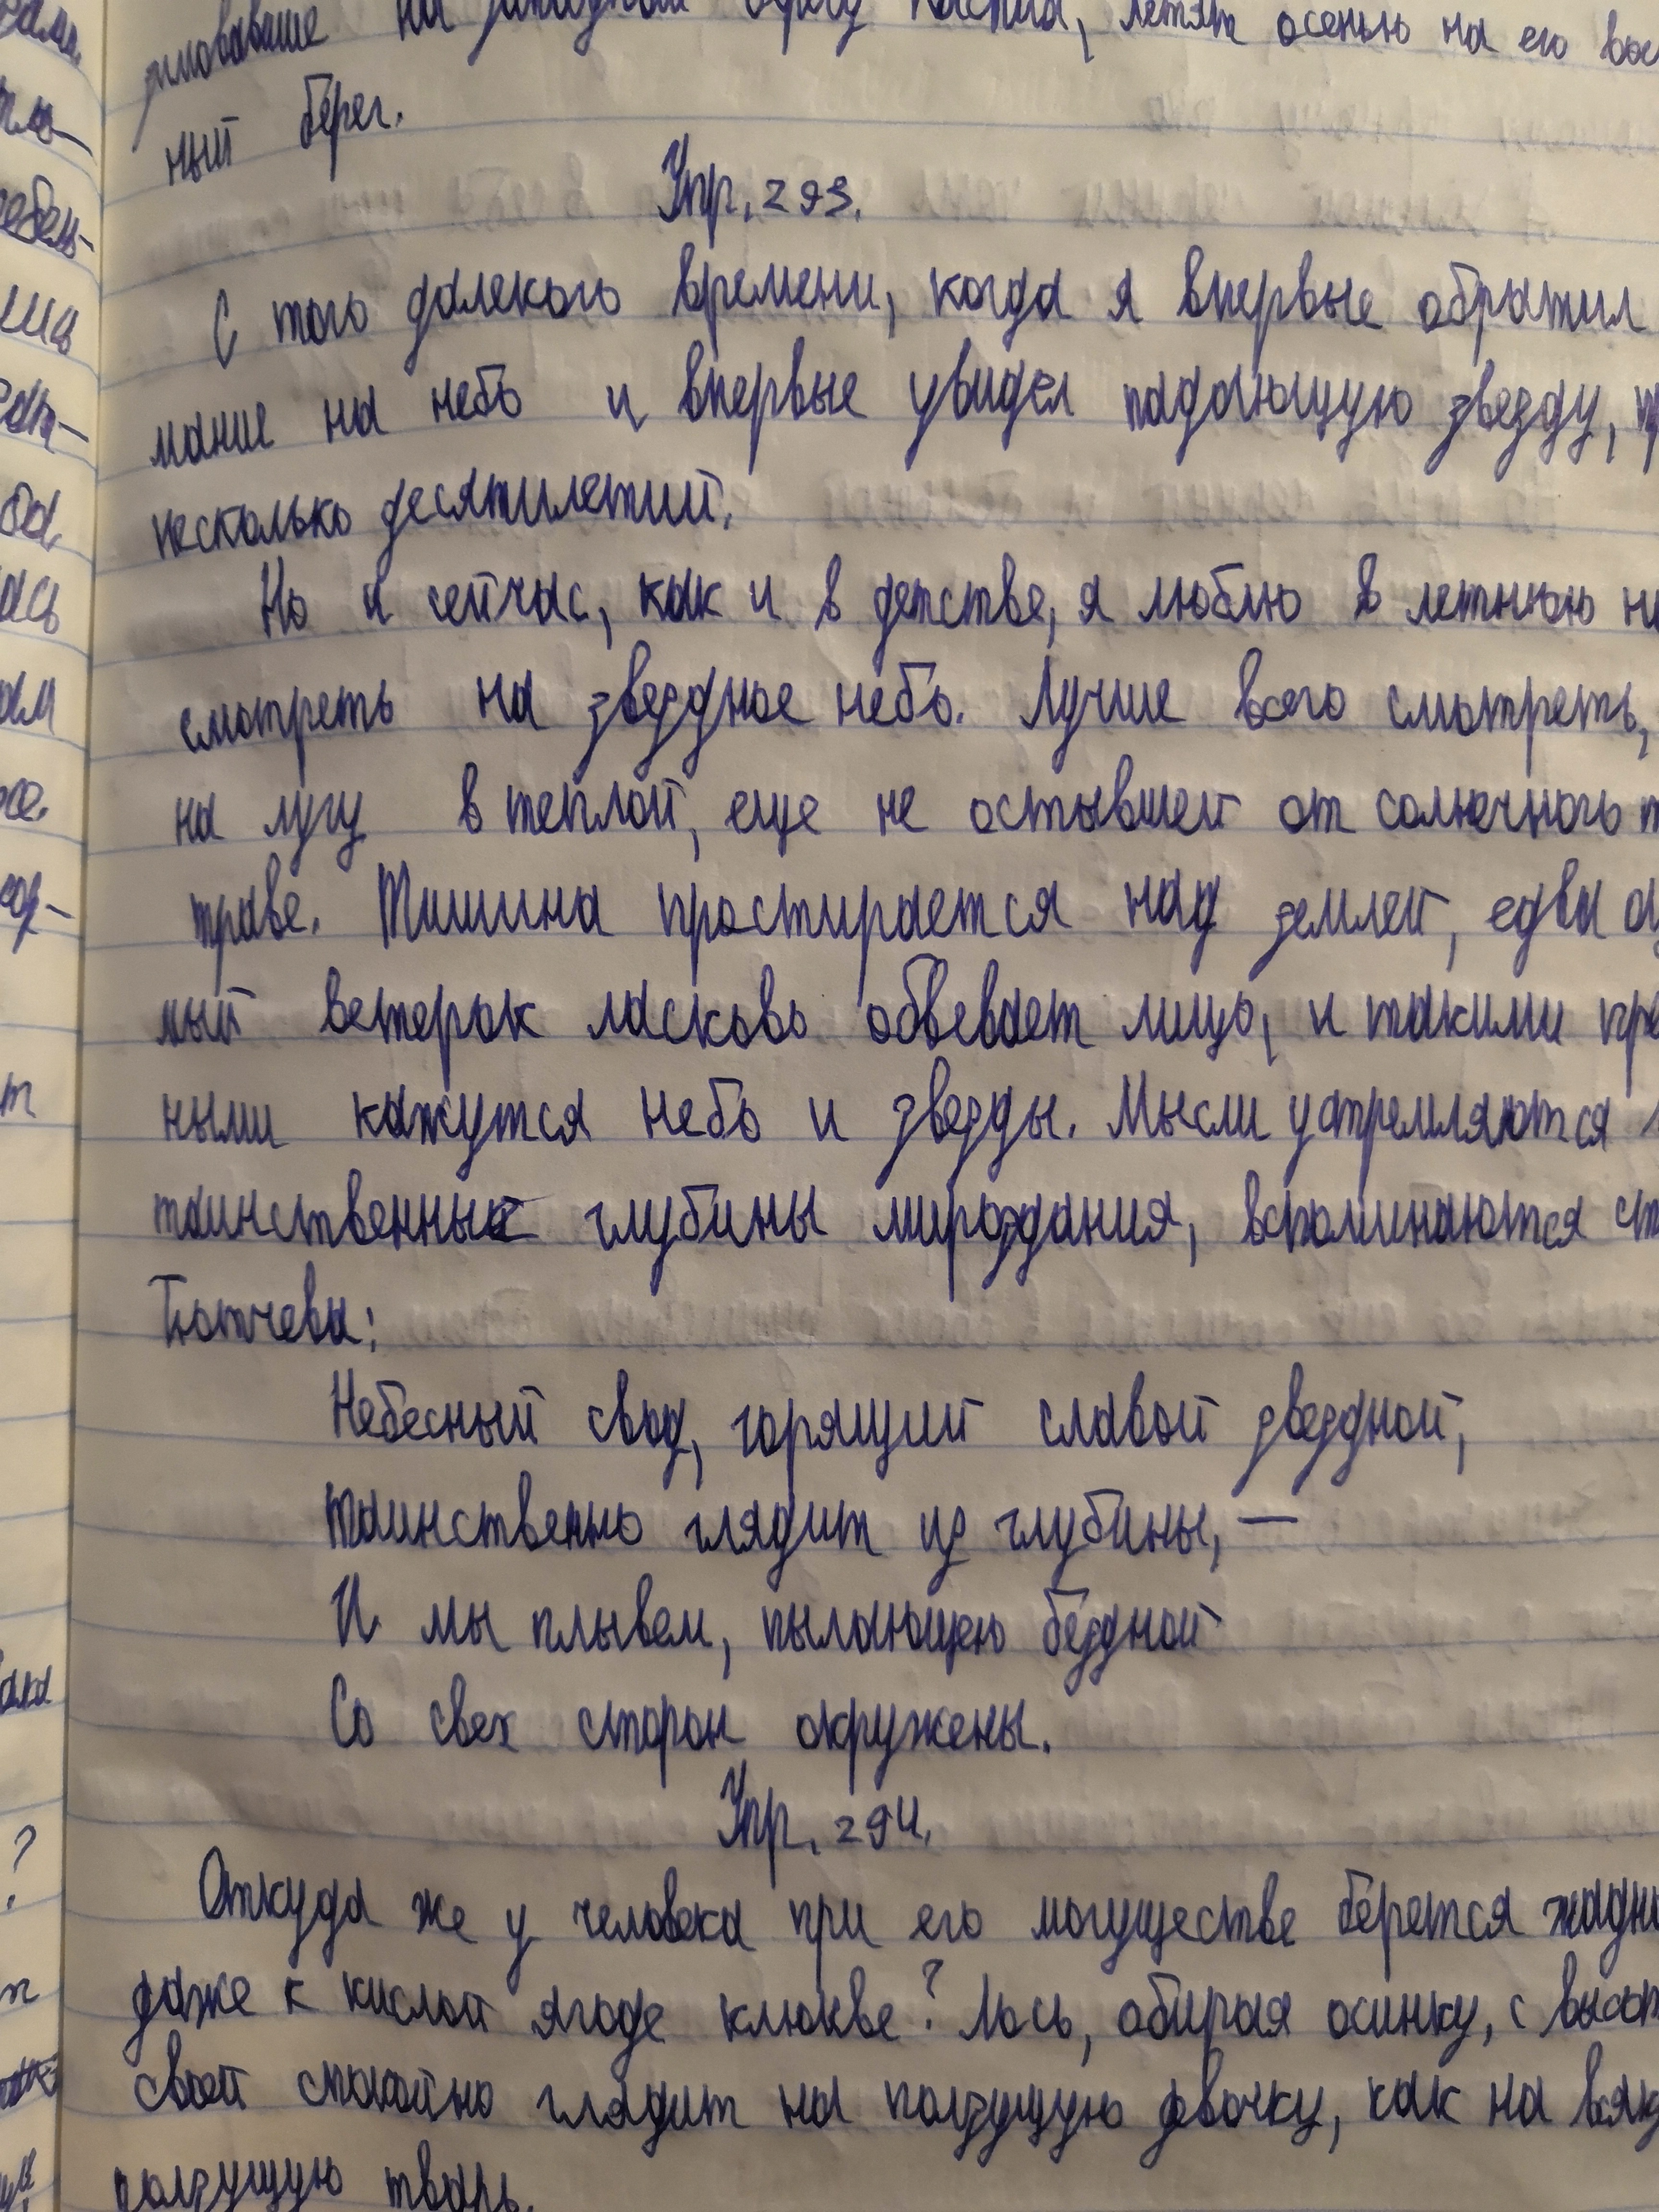 зимовавшие на западном берегу Каспия, летят осенью на его вос
ный берег.
Упр. 293.
С того далекого времени, когда я впервые обратил
мание на небо и впервые увидел падающую звезду, п
несколько десятилетий.
Но и сейчас, как и в детстве, я люблю в летнюю но
смотреть на звездное небо. Лучше всего смотреть,
на лугу в теплой, еще не остывшей от солнечного т
траве. Тишина простирается над землей, едва ощ
мый ветерок ласково обвевает лицо, и такими пре
ными кажутся небо и звезды. Мысли устремляются
таинственные глубины мироздания, вспоминаются ст
Тютчева:
Небесный свод, горящий славой звездной,
Таинственно глядит из глубины, —
И мы плывем, пылающею бездной
Со свех сторон окружены.
Упр. 294.
Откуда же у человека при его могуществе берется жадно
даже к кислой ягоде клюкве? Лось, обирая осинку, с высот
своей спокойно глядит на ползущую девочку, как на всяк
ползущую тварь.